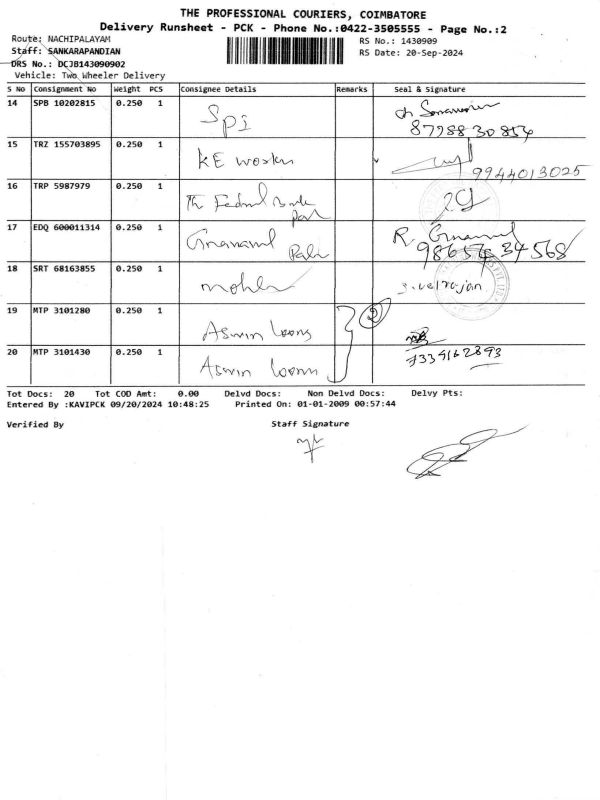 THE PROFESSIONAL COURIERS, COIMBATORE
Delivery Runsheet - PCK - Phone No.:0422-3505555 - Page No.:2
Route: NACHIPALAYAM
RS No.: 1430909
Staff: SANKARAPANDIAN
RS Date: 20-Sep-2024
DRS No.: DCJB143090902
Vehicle: Two Wheeler Delivery
S No Consignment No Weight PCS Consignee Details Remarks Seal & Signature
14 SPB 10202815 0.250 1 Spi
15 TRZ 155703895 0.250 1 KE 9944013025
16 TRP 5987979 0.250 1
17 EDQ 600011314 0.250 1 R.
18 SRT 68163855 0.250 1
19 MTP 3101280 0.250 1 Aswin 2
20 MTP 3101430 0.250 1 Aswin 7339162893
Tot Docs: 20 Tot COD Amt: 0.00 Delvd Docs: Non Delvd Docs: Delvy Pts:
Entered By :KAVIPCK 09/20/2024 10:48:25 Printed On: 01-01-2009 00:57:44
Verified By Staff Signature